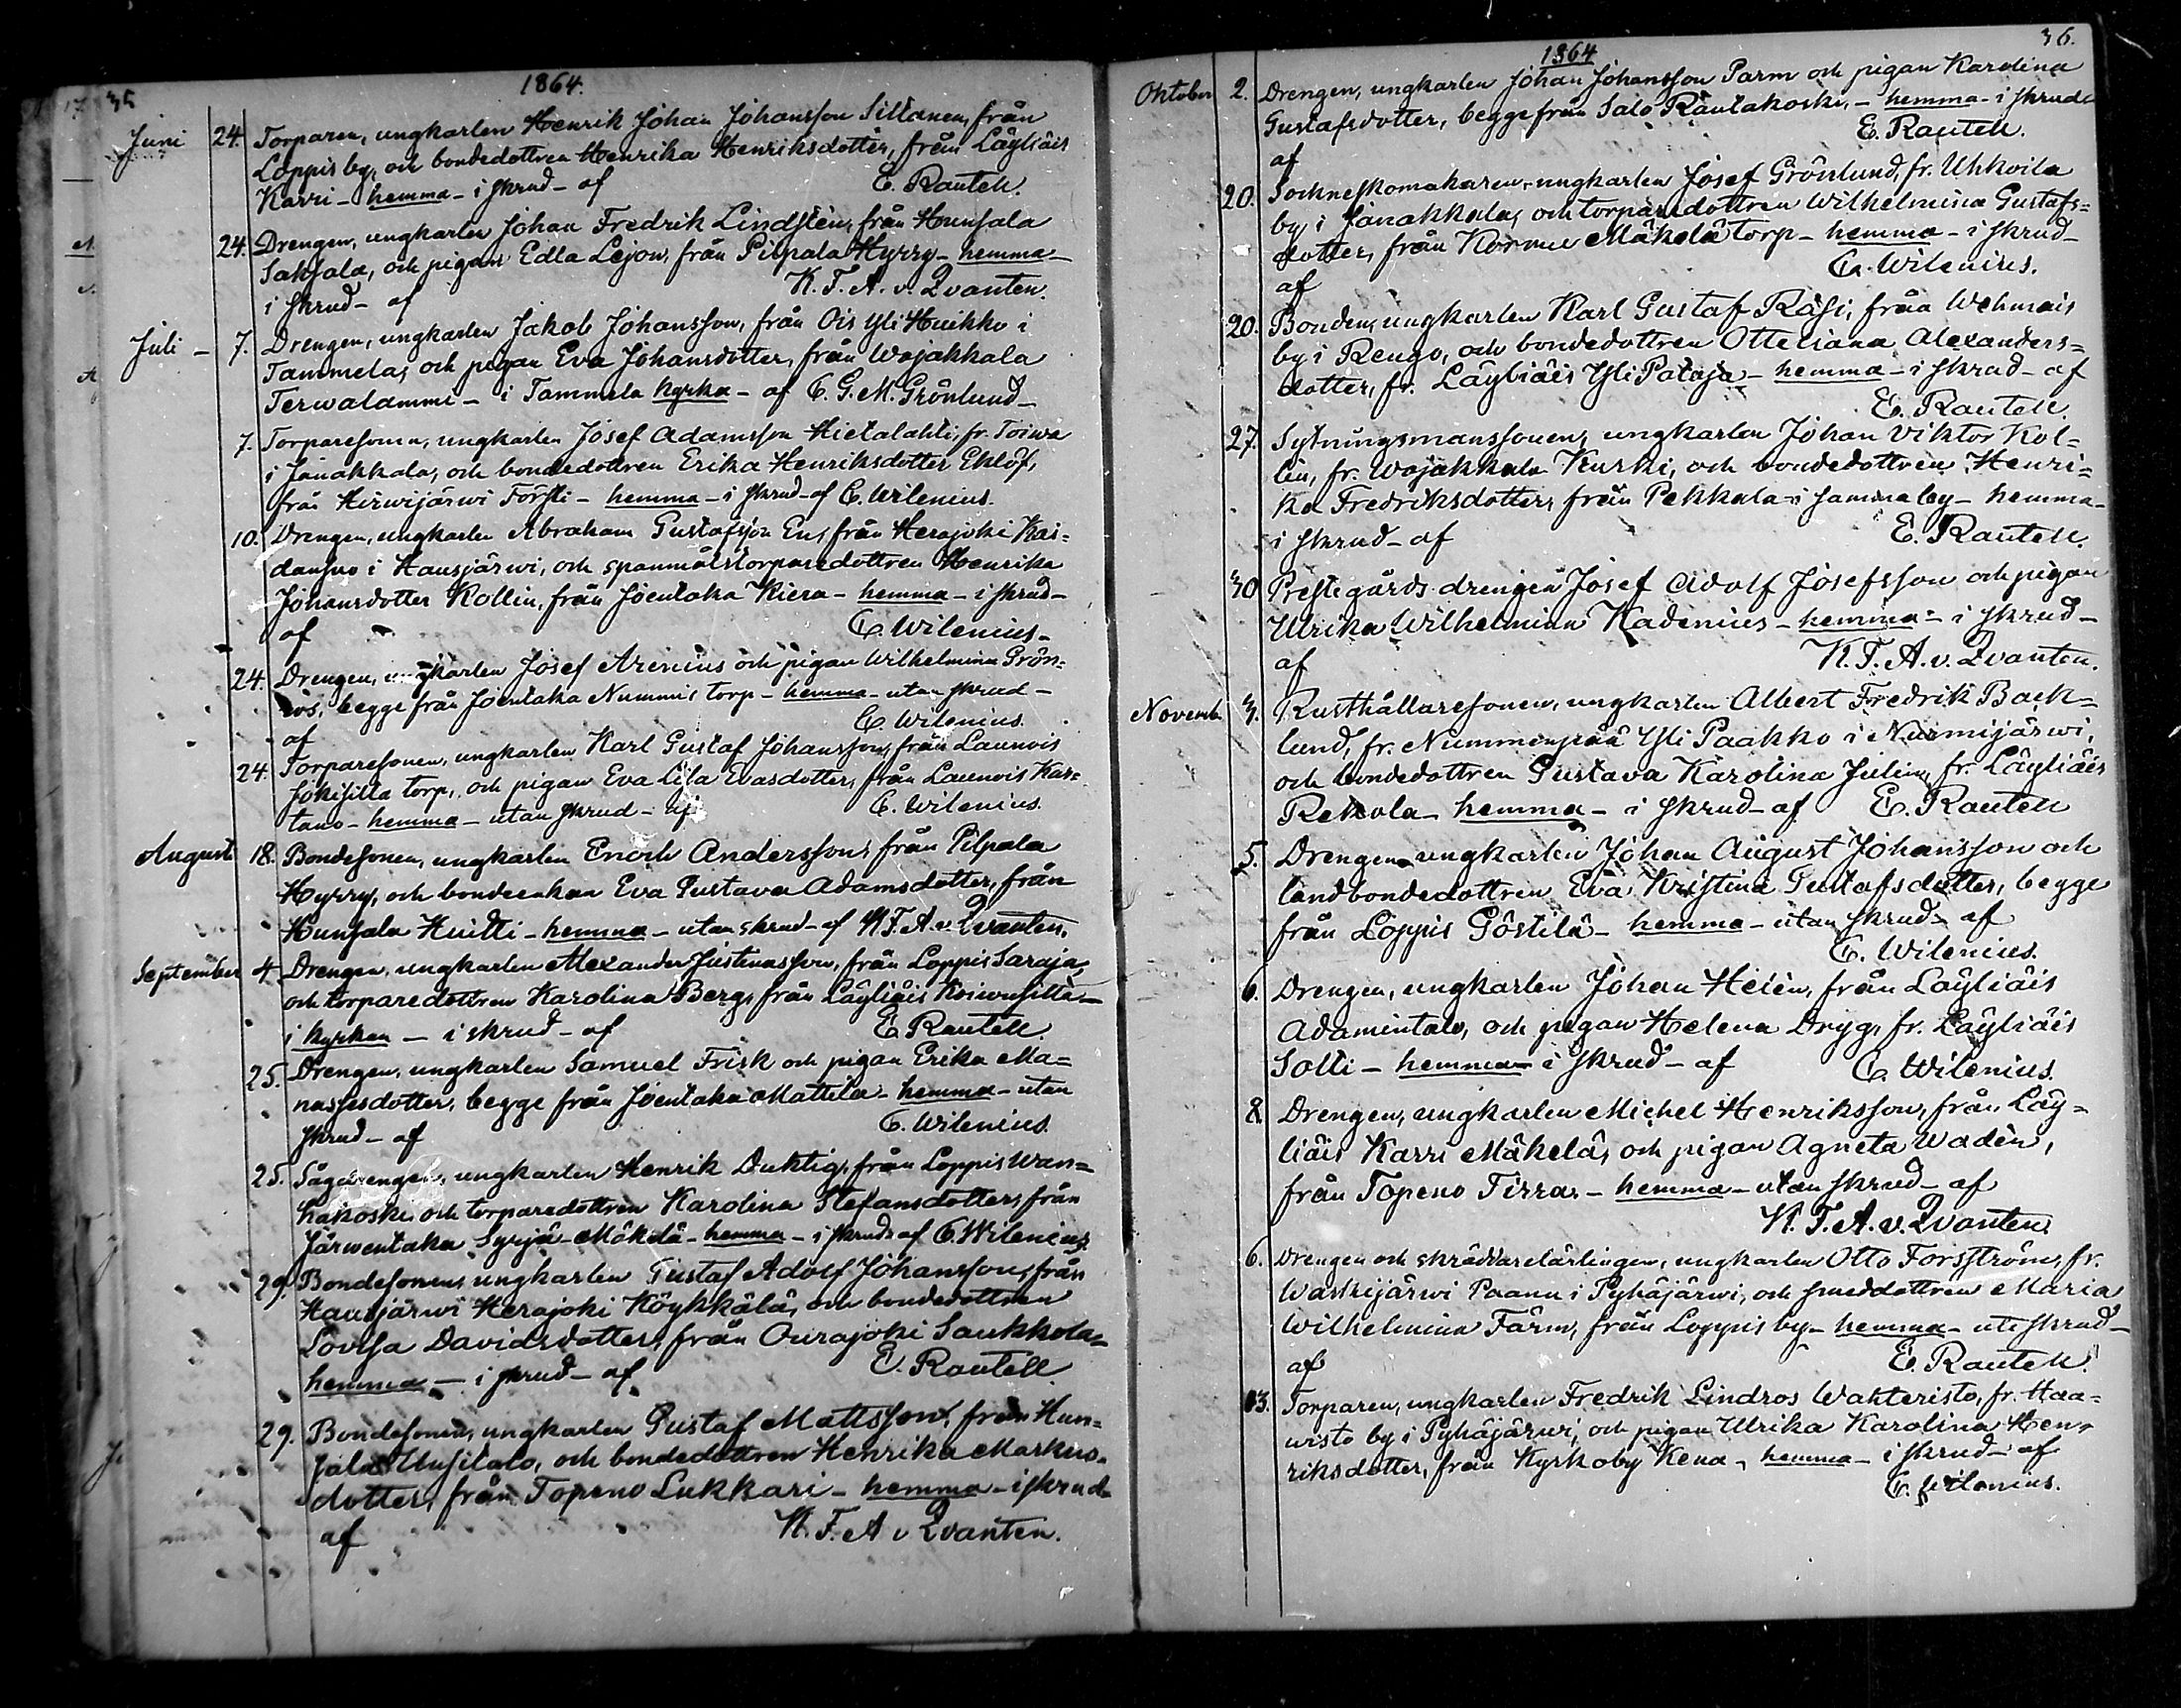 35
1864.
Juni 24. Torparen, ungkarlen Henrik Johan Johansson Sillanen, från
Loppis by, och bondedottren Henrika Henriksdotter, från Läyliäis
Karri - hemma - i skrud - af E. Rautell.
24. Drengen, ungkarlen Johan Fredrik Lindstén, från Hunsala
Saksala, och pigan Edla Lejon, från Pilpala Hyrry - hemma -
i skrud - af K. F. A. v. Qvanten.
Juli - 7. Drengen, ungkarlen Jakob Johansson, från Ois Yli Huikko i
Tammela, och pigan Eva Johansdotter, från Wojakkala
Terwalammi - i Tammela kyrka - af C. G. M. Grönlund -
7. Torparesonen, ungkarlen Josef Adamsson Hietalahti, fr. Toiwa
i Janakkala, och bondedottren Erika Henriksdotter Eklöf,
från Hirwijärwi Försti - hemma - i skrud - af C. Wilenius.
10. Drengen, ungkarlen Abraham Gustafsson En, från Herajoki Kai=
dansuo i Hausjärwi, och spanmålstorparedottren Henrika
Johansdotter Kollin, från Joentaka Kiera - hemma - i skrud -
af C. Wilenius -
24. Drengen, ungkarlen Josef Arenius och pigan Wilhelmina Grön=
roos, begge från Joentaka Nummis torp - hemma - utan skrud -
af C. Wilenius.
24. Torparesonen, ungkarlen Karl Gustaf Johansson, från Launois
Jokisilta torp, och pigan Eva Lisa Evasdotter, från Launois Kar=
tano - hemma - utan skrud - af C. Wilenius.
Augusti 18. Bondesonen, ungkarlen Enoch Andersson, från Pilpala
Hyrry, och bondeenkan Eva Gustava Adamsdotter, från
Hunsala Huitti - hemma - utan skrud - af K. F. A. v. Qvanten.
September 4. Drengen, ungkarlen Alexander Justinasson, från Loppis Saraja,
och torparedottren Karolina Berg, från Läyliäis Koiwusilta -
i kyrkan - i skrud - af E. Rautell.
25. Drengen, ungkarlen Samuel Frisk och pigan Erika Ma=
nassesdotter, begge från Joentaka Mattila - hemma - utan
skrud - af C. Wilenius.
25. Sågdrengen, ungkarlen Henrik Duktig, från Loppis Wan=
hakoski och torparedottren Karolina Stefansdotter, från
Järwentaka Syrjä-Mäkelä - hemma - i skrud - af C. Wilenius.
29. Bondesonen, ungkarlen Gustaf Adolf Johansson, från
Hausjärwi Herajoki Köykkälä, och bondedottren
Lovisa Davidsdotter, från Ourajoki Saukkola -
hemma - i skrud - af E. Rautell.
29. Bondesonen, ungkarlen Gustaf Mattsson, från Hun=
sala Uusitalo, och bondedottren Henrika Markus=
dotter, från Topeno Lukkari - hemma - i skrud -
af K. F. A. v. Qvanten.
36.
1864
Oktober 2. Drengen, ungkarlen Johan Johansson Parm och pigan Karolina
Gustafsdotter, begge från Salo Rautakoski, - hemma - i skrud -
af E. Rautell.
20. Sockneskomakaren, ungkarlen Josef Grönlund, fr. Uhkoila
by i Janakkala, och torparedottren Wilhelmina Gustafs=
dotter, från Kormu Mäkelä torp - hemma - i skrud -
af C. Wilenius.
20. Bonden, ungkarlen Karl Gustaf Räsi, från Wehmais
by i Rengo, och bondedottren Otteliana Alexanders=
dotter, fr. Läyliäis Yli Pataja - hemma - i skrud - af
E. Rautell.
27. Sytningsmanssonen, ungkarlen Johan Viktor Kol=
lin, fr. Wojakkala Kurki, och bondedottren Henri=
ka Fredriksdotter, från Pekkala i samma by - hemma -
i skrud - af E. Rautell.
30 Prestegårds drengen Josef Adolf Josefsson och pigan
Ulrika Wilhelmina Kadenius - hemma - i skrud -
af K. F. A. v. Qvanten.
Novemb. 3. Rusthållaresonen, ungkarlen Albert Fredrik Back=
lund, fr. Nummenpää Yli Paakko i Nurmijärwi,
och bondedottren Gustava Karolina Julin, fr. Läyliäis
Rekola - hemma - i skrud - af E. Rautell
5. Drengen, ungkarlen Johan August Johansson och
landbondedottren Eva Kristina Gustafsdotter, begge
från Loppis Göstilä - hemma - utan skrud - af
C. Wilenius.
6. Drengen, ungkarlen Johan Heién, från Läyliäis
Adamintalo, och pigan Helena Dryg, fr. Läyliäis
Solli - hemma - i skrud - af C. Wilenius.
8. Drengen, ungkarlen Michel Henriksson, från Läy=
liäis Karri Mäkelä, och pigan Agneta Wadén,
från Topeno Tirra, - hemma - utan skrud - af
K. F. A. v. Qvanten.
6. Drengen och skräddarelärlingen, ungkarlen Otto Forsström, fr.
Waskijärwi Paanu i Pyhäjärwi, och smeddottren Maria
Wilhelmina Färm, från Loppis by - hemma - ut. skrud -
af E. Rautell.
13. Torparen, ungkarlen Fredrik Lindros Wahteristo, fr. Haa=
wisto by i Pyhäjärwi, och pigan Ulrika Karolina Hen=
riksdotter, från Kyrkoby Kena - hemma - i skrud - af
C. Wilenius.